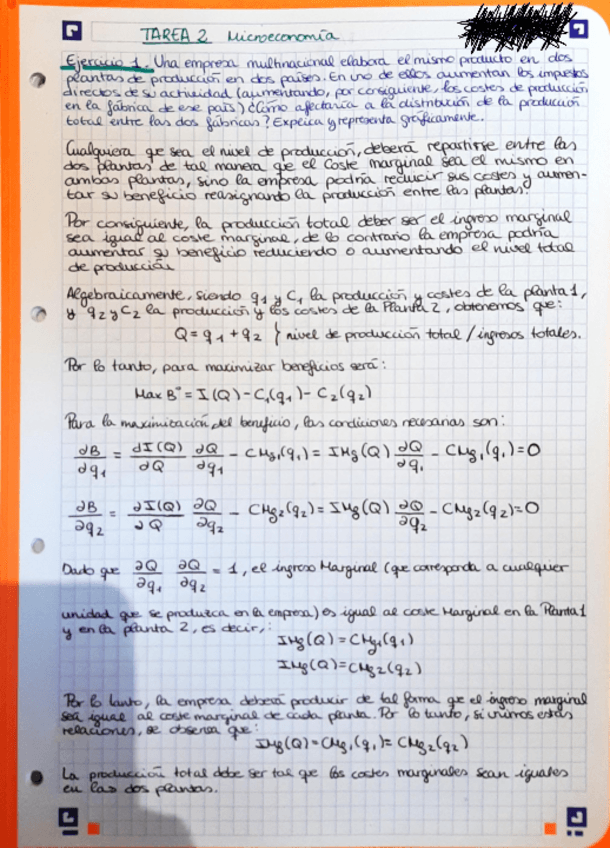 TAREA 2 Microeconomía
Ejercicio 1. Una empresa multinacional elabora el mismo producto en dos
plantas de producción en dos países. En uno de ellos aumentan los impuestos
directos de su actividad (aumentando, por consiguiente, los costes de producción
en la fábrica de ese país) ¿Cómo afectaría a la distribución de la producción
total entre las dos fábricas? Explica y representa gráficamente.
Cualquiera que sea el nivel de producción, deberá repartirse entre las
dos plantas de tal manera que el coste marginal sea el mismo en
ambas plantas, sino la empresa podría reducir sus costes y aumen-
tar su beneficio reasignando la producción entre las plantas.
Por consiguiente, la producción total deber ser el ingreso marginal
sea igual al coste marginal, de lo contrario la empresa podría
aumentar su beneficio reduciendo o aumentando el nivel total
de producción
Algebraicamente, siendo q1 y C1 la producción y costes de la planta 1,
y q2 y C2 la producción y los costes de la Planta 2, obtenemos que:
Q = q1 + q2 } nivel de producción total / ingresos totales.
Por lo tanto, para maximizar beneficios será:
Max Bº = I(Q) - C1(q1) - C2(q2)
Para la maximización del beneficio, las condiciones necesarias son:
∂B/∂q1 = dI(Q)/∂Q ∂Q/∂q1 - CMg1(q1) = IMg(Q) ∂Q/∂q1 - CMg1(q1) = 0
∂B/∂q2 = ∂I(Q)/∂Q ∂Q/∂q2 - CMg2(q2) = IMg(Q) ∂Q/∂q2 - CMg2(q2) = 0
Dado que ∂Q/∂q1 ∂Q/∂q2 = 1, el ingreso Marginal (que corresponda a cualquier
unidad que se produzca en la empresa) es igual al coste Marginal en la Planta 1
y en la planta 2, es decir,:
IMg(Q) = CMg1(q1)
IMg(Q) = CMg2(q2)
Por lo tanto, la empresa deberá producir de tal forma que el ingreso marginal
sea igual al coste marginal de cada planta. Por lo tanto, si unimos estas
relaciones, se observa que:
IMg(Q) = CMg1(q1) = CMg2(q2)
La producción total debe ser tal que los costes marginales sean iguales
en las dos plantas.